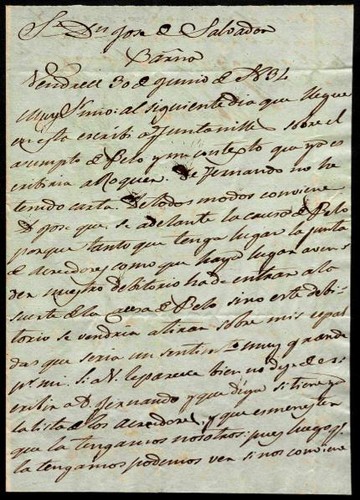 Sr. Dn Jose de Salvador
Barna
Vendrell 30 de Junio de 1834
Muy Sr mio: al siguiente dia que llegue
a esta escribi a Juntamille sobre el
asumpto de Pelo y me contexto que yo es
cribiria a Roquer. De Fernando no he
tenido carta. De todos modos conviene
D. Jose que se adelante la causa de Pelo
porque tanto que tenga lugar la junta
de acreedores como que haya lugar a
den nuestro debitorio ha de entrar a la
suerte de la de Pelo sino este debi
torio se vendria atirar sobre mis espal
das que seria un muy grande
pa mi. Si a V. le parece bien no deje de es
cribir a D. Fernando y que diga si tiene ya
la lista de los acreedores, y que es menester
que la tengamos nosotros: pues luego q.
la tengamos podemos ver si nos conviene